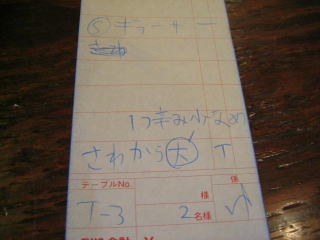 ⑤ ギョーザ 一
1つ辛み少なめ
さわから 大 T
テーブルNo. 様 係
T-3 2名様 ゆ